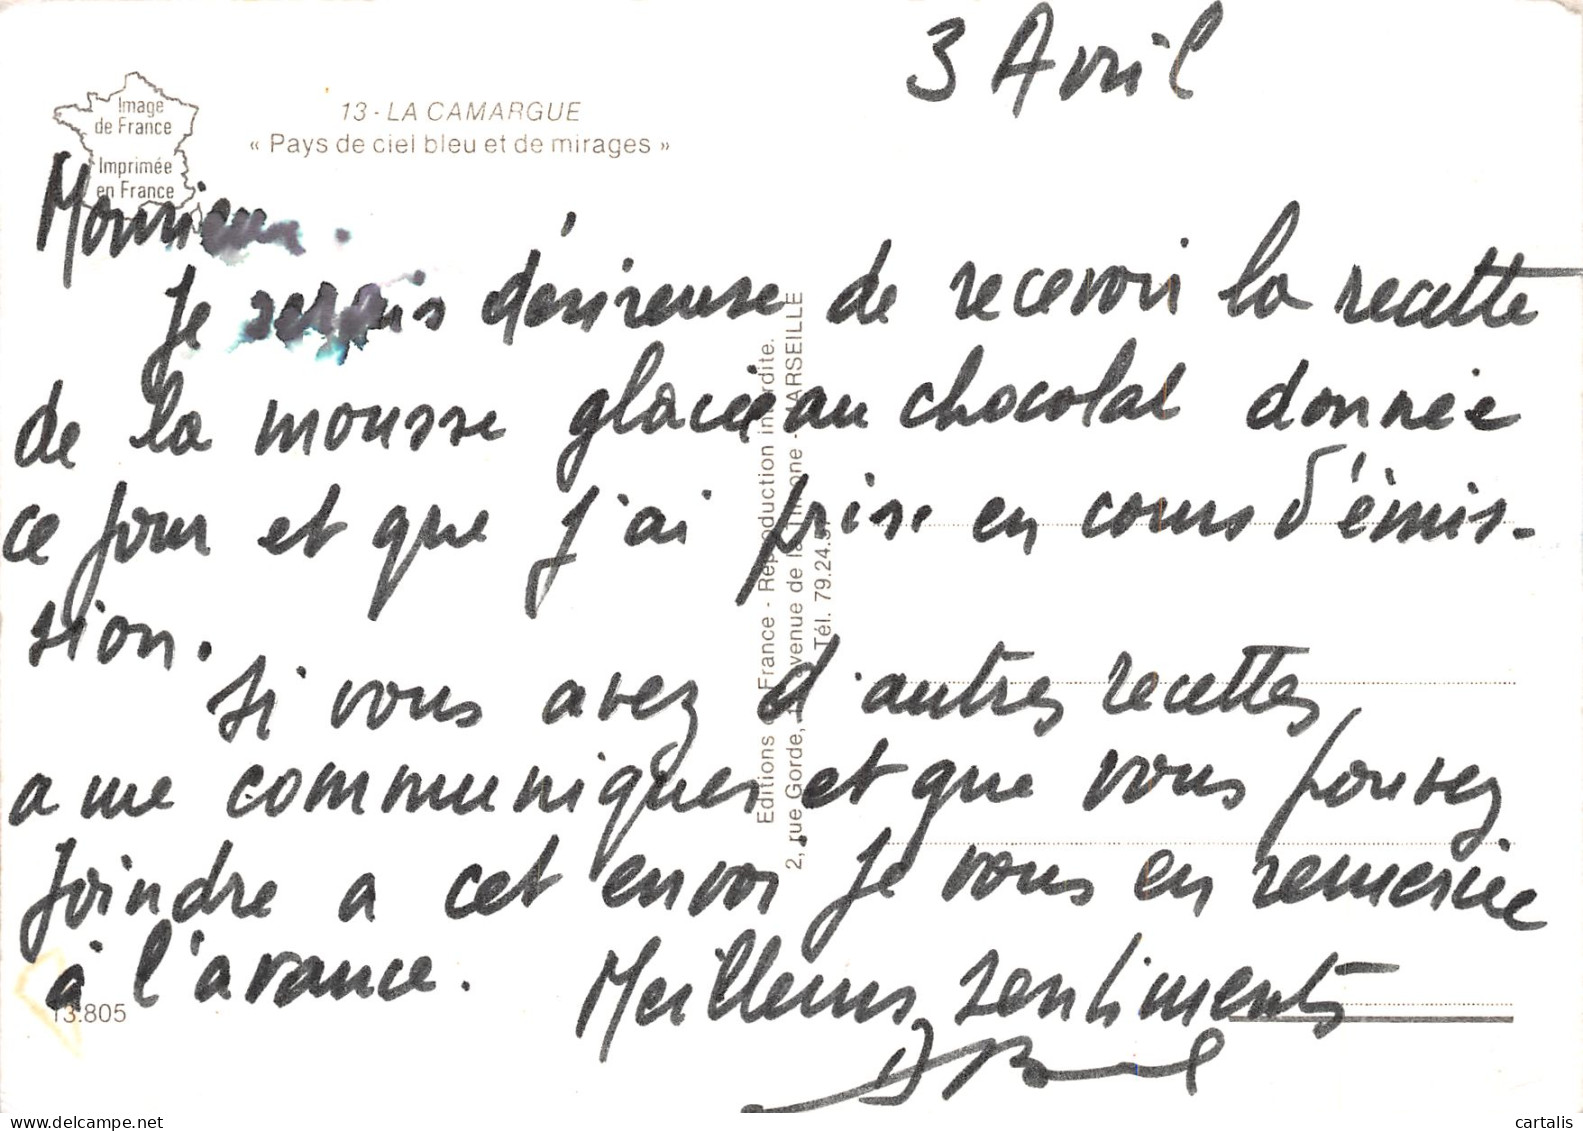 3 Avril
Image
de France
Imprimée
en France
13 - LA CAMARGUE
« Pays de ciel bleu et de mirages »
Monsieur.
Je serais désireuse de recevoir la recette
de la mousse glacée au chocolat donnée
ce jour et que j'ai prise en cours d'émis-
sion.
Si vous avez d'autres recettes
a me communiquer et que vous pouvez
joindre a cet envoi je vous en remercie
à l'avance.
Meilleurs sentiments
13.805
Editions de France - Reproduction interdite.
2, rue Gorde, avenue de la Timone - MARSEILLE
Tél. 79.24.5
cartalis